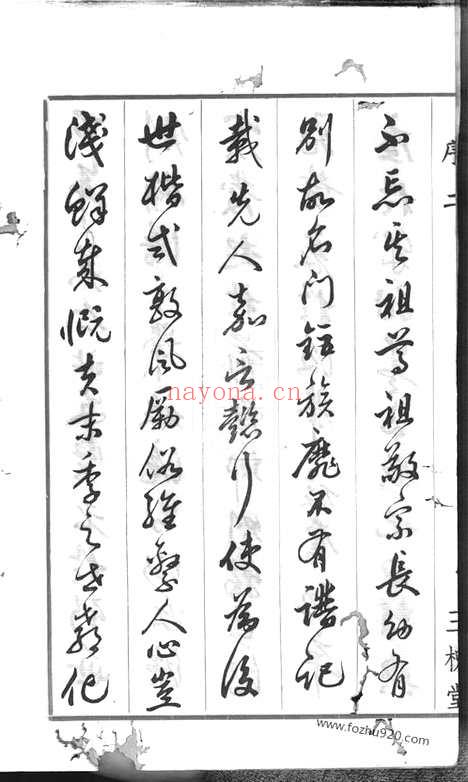 序二
三槐堂
不忘其祖尊祖敬宗長幼有
別故名門鉅族靡不有譜記
載先人嘉言懿行使為後
世楷式敦風勵俗維繫人心豈
淺鮮哉慨夫末季之世教化
nayona.cn
www.fozhu920.com